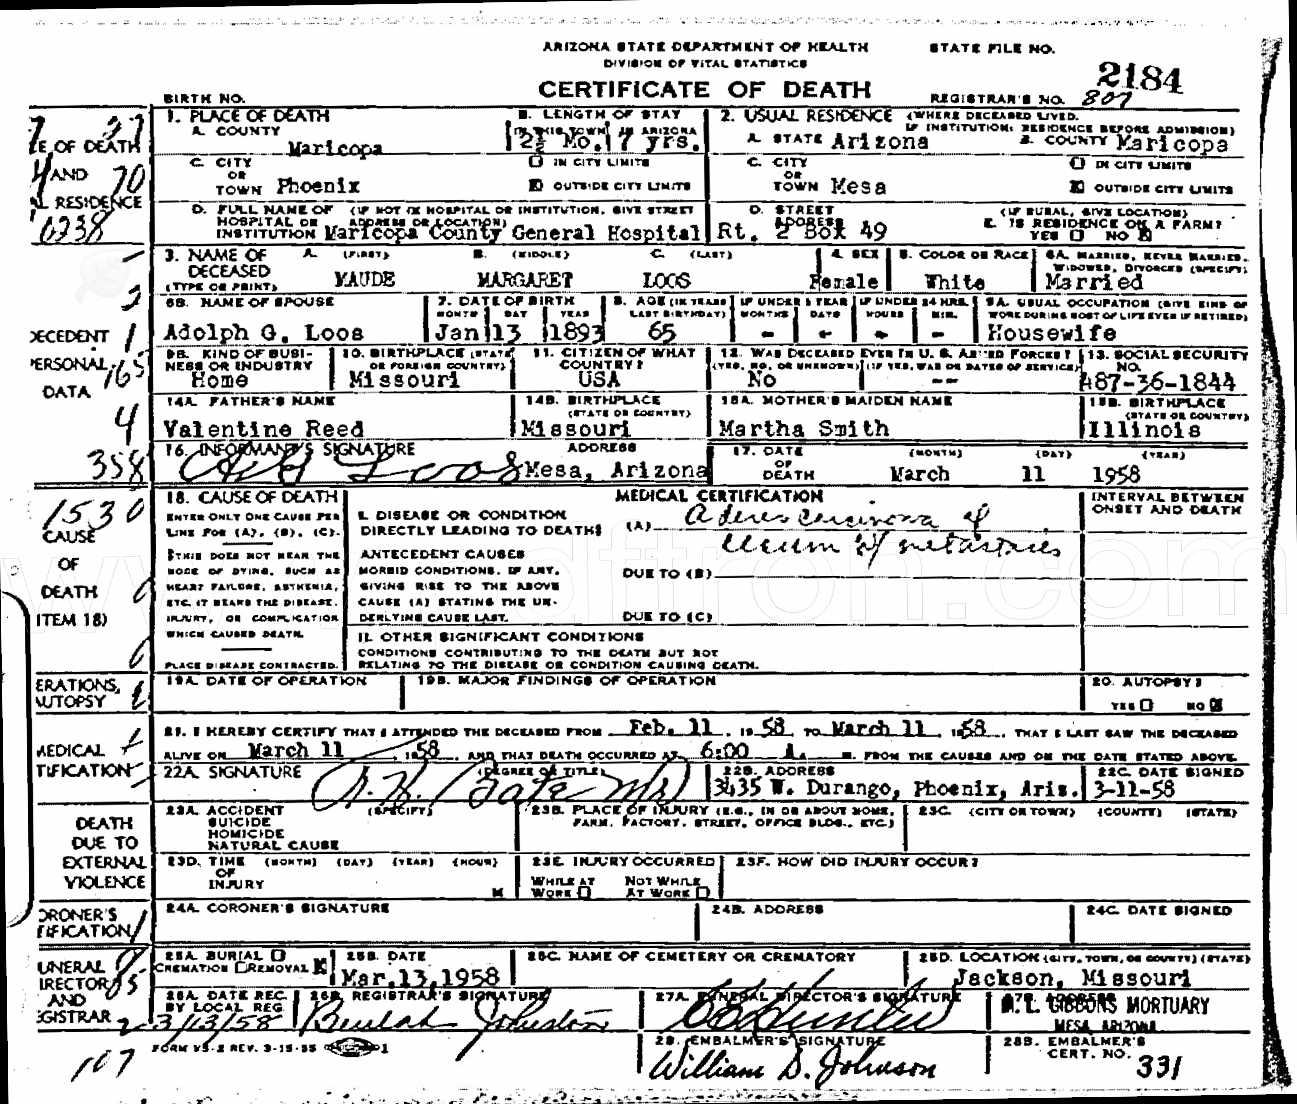 ARIZONA STATE DEPARTMENT OF HEALTH
DIVISION OF VITAL STATISTICS
CERTIFICATE OF DEATH
STATE FILE NO. 2184
REGISTRAR'S NO. 807
BIRTH NO.
1. PLACE OF DEATH
A. COUNTY
Maricopa
B. LENGTH OF STAY
IN THIS TOWN IN ARIZONA
2½ Mo. 17 yrs.
2. USUAL RESIDENCE (WHERE DECEASED LIVED.
IF INSTITUTION: RESIDENCE BEFORE ADMISSION)
A. STATE Arizona B. COUNTY Maricopa
C. CITY OR TOWN Phoenix
IN CITY LIMITS
OUTSIDE CITY LIMITS
C. CITY OR TOWN Mesa
IN CITY LIMITS
OUTSIDE CITY LIMITS
D. FULL NAME OF (IF NOT IN HOSPITAL OR INSTITUTION, GIVE STREET
HOSPITAL OR ADDRESS OR LOCATION)
INSTITUTION Maricopa County General Hospital
D. STREET ADDRESS (IF RURAL, GIVE LOCATION)
Rt. 2 Box 49
E. IS RESIDENCE ON A FARM?
YES NO
3. NAME OF DECEASED (TYPE OR PRINT)
A. (FIRST) B. (MIDDLE) C. (LAST)
MAUDE MARGARET LOOS
4. SEX
Female
5. COLOR OR RACE
White
6A. MARRIED, NEVER MARRIED,
WIDOWED, DIVORCED (SPECIFY)
Married
6B. NAME OF SPOUSE
Adolph G. Loos
7. DATE OF BIRTH
MONTH DAY YEAR
Jan 13 1893
8. AGE (IN YEARS LAST BIRTHDAY)
65
IF UNDER 1 YEAR
MONTHS DAYS
IF UNDER 24 HRS.
HOURS MIN.
9A. USUAL OCCUPATION (GIVE KIND OF
WORK DURING MOST OF LIFE EVEN IF RETIRED)
Housewife
9B. KIND OF BUSINESS OR INDUSTRY
Home
10. BIRTHPLACE (STATE OR FOREIGN COUNTRY)
Missouri
11. CITIZEN OF WHAT COUNTRY?
USA
12. WAS DECEASED EVER IN U. S. ARMED FORCES?
(YES, NO, OR UNKNOWN) (IF YES, WAR OR DATES OF SERVICE)
No --
13. SOCIAL SECURITY NO.
487-36-1844
14A. FATHER'S NAME
Valentine Reed
14B. BIRTHPLACE (STATE OR COUNTRY)
Missouri
15A. MOTHER'S MAIDEN NAME
Martha Smith
15B. BIRTHPLACE (STATE OR COUNTRY)
Illinois
16. INFORMANT'S SIGNATURE ADDRESS
Loos Mesa, Arizona
17. DATE OF DEATH (MONTH) (DAY) (YEAR)
March 11 1958
18. CAUSE OF DEATH
ENTER ONLY ONE CAUSE PER
LINE FOR (A), (B), (C).
THIS DOES NOT MEAN THE
MODE OF DYING, SUCH AS
HEART FAILURE, ASTHENIA,
ETC. IT MEANS THE DISEASE,
INJURY, OR COMPLICATION
WHICH CAUSED DEATH.
PLACE DISEASE CONTRACTED.
MEDICAL CERTIFICATION
I. DISEASE OR CONDITION
DIRECTLY LEADING TO DEATH
(A)
ANTECEDENT CAUSES
MORBID CONDITIONS, IF ANY,
GIVING RISE TO THE ABOVE
CAUSE (A) STATING THE UN-
DERLYING CAUSE LAST.
DUE TO (B)
DUE TO (C)
II. OTHER SIGNIFICANT CONDITIONS
CONDITIONS CONTRIBUTING TO THE DEATH BUT NOT
RELATING TO THE DISEASE OR CONDITION CAUSING DEATH.
INTERVAL BETWEEN
ONSET AND DEATH
19A. DATE OF OPERATION
19B. MAJOR FINDINGS OF OPERATION
20. AUTOPSY?
YES NO
21. I HEREBY CERTIFY THAT I ATTENDED THE DECEASED FROM Feb. 11, 1958 TO March 11, 1958, THAT I LAST SAW THE DECEASED
ALIVE ON March 11, 1958, AND THAT DEATH OCCURRED AT 6:00 A. M. FROM THE CAUSES AND ON THE DATE STATED ABOVE.
22A. SIGNATURE (DEGREE OR TITLE)
22B. ADDRESS
3435 W. Durango, Phoenix, Aris.
22C. DATE SIGNED
3-11-58
23A. ACCIDENT (SPECIFY)
SUICIDE
HOMICIDE
NATURAL CAUSE
23B. PLACE OF INJURY (E.G., IN OR ABOUT HOME,
FARM, FACTORY, STREET, OFFICE BLDG., ETC.)
23C. (CITY OR TOWN) (COUNTY) (STATE)
23D. TIME OF INJURY (MONTH) (DAY) (YEAR) (HOUR)
M
23E. INJURY OCCURRED
WHILE AT WORK NOT WHILE AT WORK
23F. HOW DID INJURY OCCUR?
24A. CORONER'S SIGNATURE
24B. ADDRESS
24C. DATE SIGNED
25A. BURIAL
CREMATION REMOVAL
25B. DATE
Mar.13,1958
25C. NAME OF CEMETERY OR CREMATORY
25D. LOCATION (CITY, TOWN, OR COUNTY) (STATE)
Jackson, Missouri
26A. DATE REC. BY LOCAL REG.
3/13/58
26B. REGISTRAR'S SIGNATURE
Beulah Johnston
27A. FUNERAL DIRECTOR'S SIGNATURE
27B. ADDRESS
M. L. GIBBONS MORTUARY
MESA, ARIZONA
28. EMBALMER'S SIGNATURE
William D. Johnson
28B. EMBALMER'S CERT. NO.
331
FORM VS-2 REV. 3-15-55
107